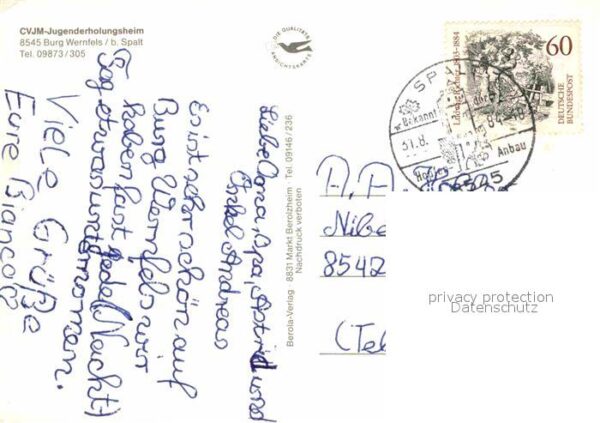 CVJM-Jugenderholungsheim
8545 Burg Wernfels / b. Spalt
Tel. 09873 / 305
DIE QUALITÄTS
ANSICHTSKARTE
Liebe Oma, Opa, Astrid und
Onkel Andreas
Es ist sehr schön auf
Burg Wernfels wir
haben fast jede(Nacht)
Tag etwas unternomen.
Viele Grüße
Eure Bianca
Berola-Verlag 8831 Markt Berolzheim Tel. 09146/236
Nachdruck verboten
60
DEUTSCHE
BUNDESPOST
Ludwig Richter 1803-1884
SPALT
Bekannt
31.8.
84-18
Hopfen
Anbau
8545
A. A
Nibe
8542
(Tel
privacy protection
Datenschutz